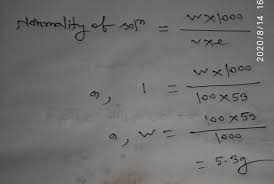 Normality of sol^n = w×1000 / v×e
or, 1 = w×1000 / 100×53
or, w = 100×53 / 1000
= 5.3g
2020/8/14 16